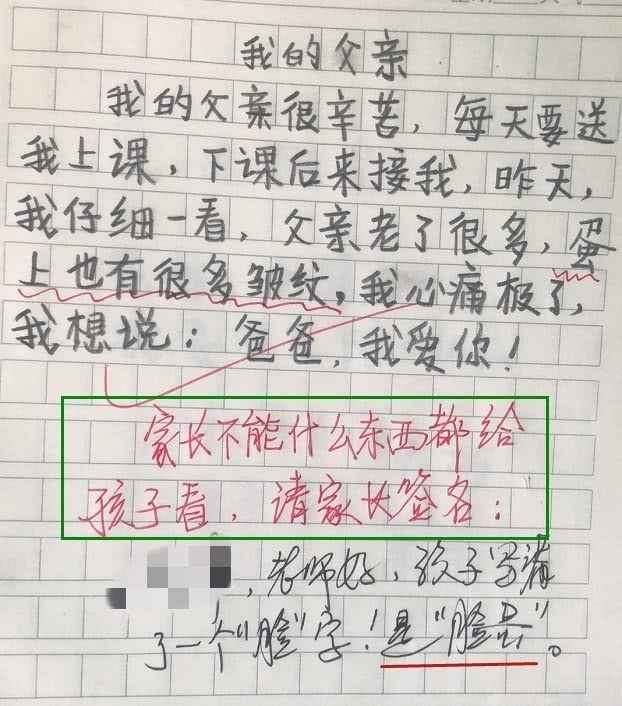 我的父亲
我的父亲很辛苦，每天要送
我上课，下课后来接我，昨天，
我仔细一看，父亲老了很多，蛋
上也有很多皱纹，我心痛极了，
我想说：爸爸，我爱你！
家长不能什么东西都给
孩子看，请家长签名：
，老师好，孩子写漏
了一个“脸”字！是“脸蛋”。